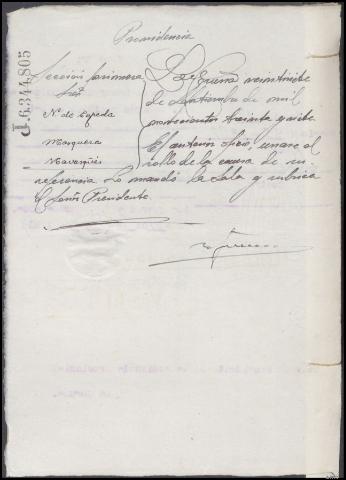 Presidencia
J.6.344.805
Sección primera
Sres
N. de Cepeda
Mosquera
Navayúes
La Coruña veintisiete
de Setiembre de mil
novecientos treinta y siete
El anterior oficio, unase al
rollo de la causa de su
referencia Lo mandó la Sala y rubrica
el Señor Presidente.